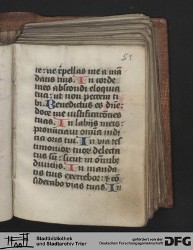 51
te: ne repellas me a mā
datis tuis. In corde
meo abscondi eloquia
tua: ut non peccem ti
bi. Benedictus es dñe:
doce me iustificationes
tuas. In labijs meis:
pronūtiaui omnia iudi
cia oris tui. In uia tes
timoniorū tuorū delecta
tus sū: sicut in omnibꝫ
diuitijs. In manda
tis tuis exercebor: et cō
siderabo uias tuas. In
Stadtbibliothek
und Stadtarchiv Trier
gefördert von der
Deutschen Forschungsgemeinschaft
DFG